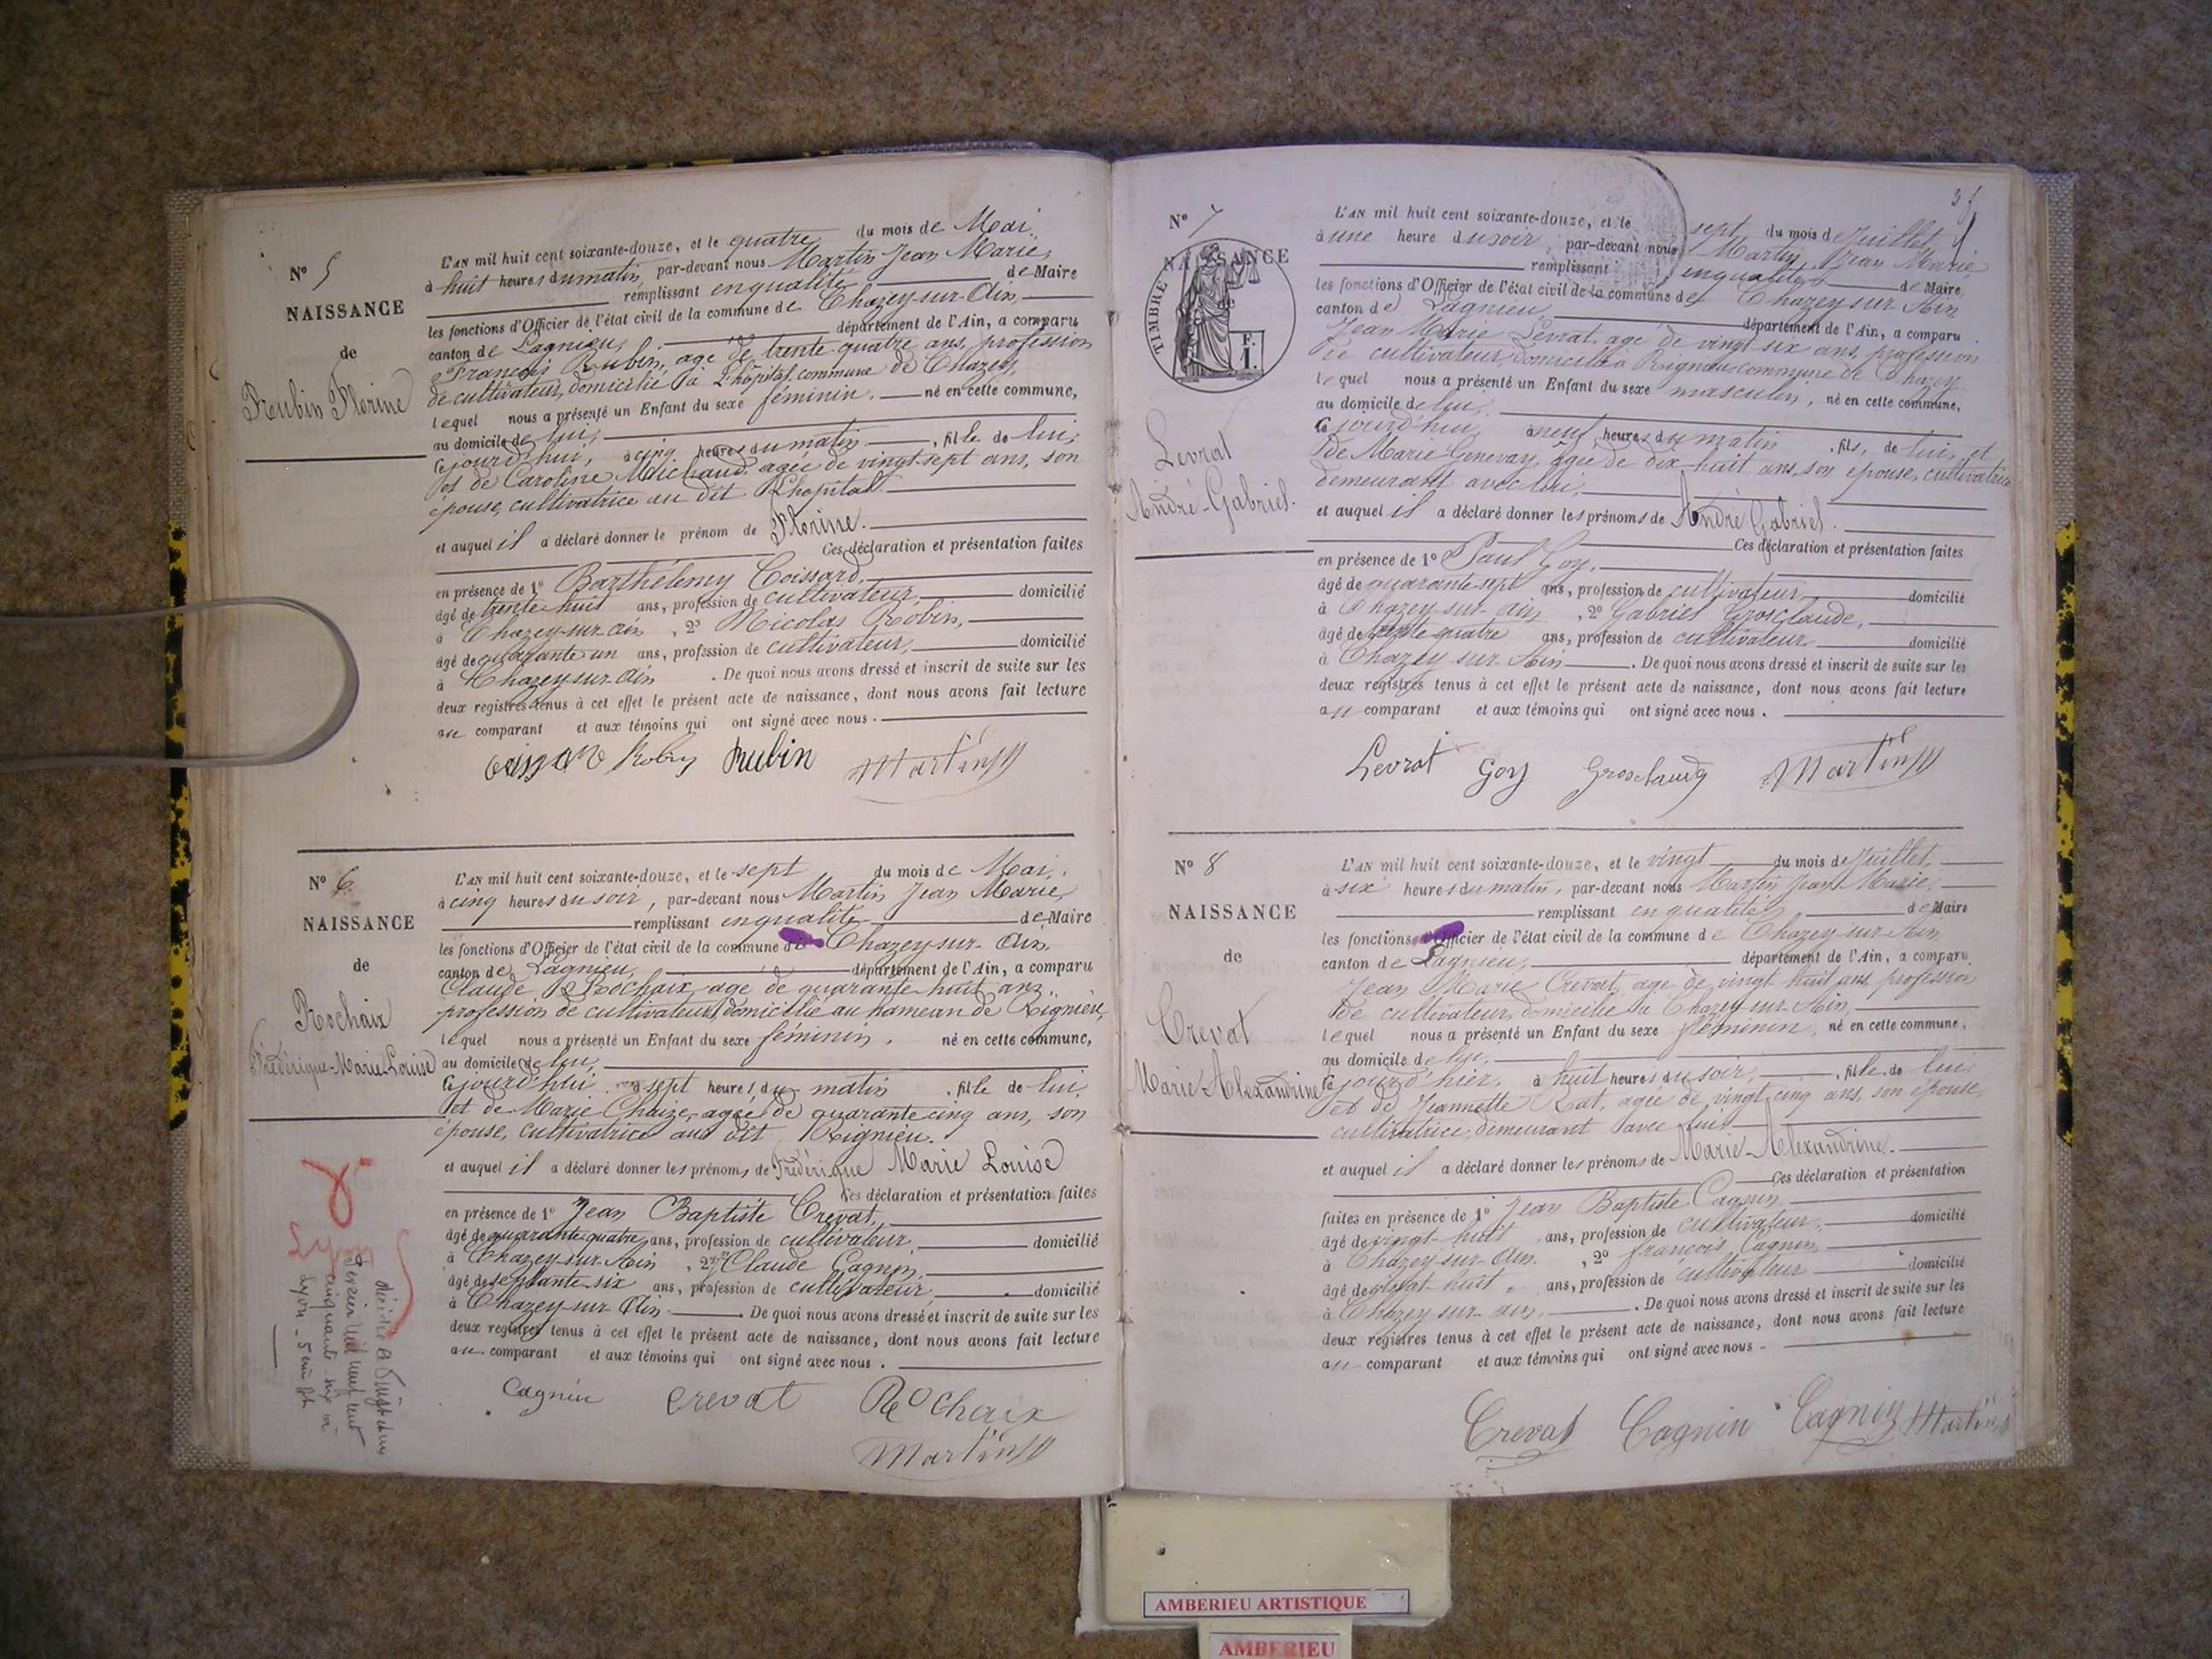 N° 5
NAISSANCE
de
Rubin Florine
L'AN mil huit cent soixante-douze, et le quatre du mois de Mai,
à huit heures du matin, par-devant nous Martin Jean Marie,
remplissant en qualité de Maire
les fonctions d'Officier de l'état civil de la commune de Chazey-sur-Ain,
canton de Lagnieu, département de l'Ain, a comparu
François Rubin, agé de trente quatre ans, profession
de cultivateur, domicilié à L'hôpital commune de Chazey,
lequel nous a présenté un Enfant du sexe féminin, né en cette commune,
au domicile de lui,
Cejourd'hui, à cinq heures du matin, fille de lui,
et de Caroline Michaud, agée de vingt-sept ans, son
épouse, cultivatrice au dit L'hopital
et auquel il a déclaré donner le prénom de Florine.
Ces déclaration et présentation faites
en présence de 1° Barthélemy Coissard,
âgé de trente huit ans, profession de cultivateur, domicilié
à Chazey-sur-ain, 2° Nicolas Robin,
âgé de quarante un ans, profession de cultivateur, domicilié
à Chazey sur Ain. De quoi nous avons dressé et inscrit de suite sur les
deux registres tenus à cet effet le présent acte de naissance, dont nous avons fait lecture
au comparant et aux témoins qui ont signé avec nous.
Robin Rubin Martin
N° 6
NAISSANCE
de
Rochaix
Frédérique-Marie-Louise
L'AN mil huit cent soixante-douze, et le sept du mois de Mai,
à cinq heures du soir, par-devant nous Martin Jean Marie,
remplissant en qualité de Maire
les fonctions d'Officier de l'état civil de la commune de Chazey-sur-Ain
canton de Lagnieu, département de l'Ain, a comparu
Claude Rochaix, agé de quarante huit ans,
profession de cultivateur, domicilié au hameau de Rignieu,
lequel nous a présenté un Enfant du sexe féminin, né en cette commune,
au domicile de lui,
Cejourd'hui à sept heures du matin, fille de lui,
et de Marie Chaize, agée de quarante cinq ans, son
épouse, cultivatrice au dit Rignieu.
et auquel il a déclaré donner les prénoms de Frédérique Marie Louise
Ces déclaration et présentation faites
en présence de 1° Jean Baptiste Crevat,
âgé de quarante quatre ans, profession de cultivateur, domicilié
à Chazey-sur-Ain, 2° Claude Cagnin,
âgé de septante six ans, profession de cultivateur, domicilié
à Chazey-sur-Ain. De quoi nous avons dressé et inscrit de suite sur les
deux registres tenus à cet effet le présent acte de naissance, dont nous avons fait lecture
au comparant et aux témoins qui ont signé avec nous.
Cagnin Crevat Rochaix
Martin
Lyon
mil neuf cent
cinquante six à
Lyon - 5
N° 7
NAISSANCE
de
TIMBRE
F.
1.
Levrat
André-Gabriel.
L'AN mil huit cent soixante-douze, et le sept du mois de Juillet
à une heure du soir, par-devant nous Martin Jean Marie
remplissant en qualité de Maire
les fonctions d'Officier de l'état civil de la commune de Chazey sur Ain
canton de Lagnieu, département de l'Ain, a comparu
Jean Marie Levrat, agé de vingt six ans, profession
de cultivateur, domicilié à Rignieu commune de Chazey
lequel nous a présenté un Enfant du sexe masculin, né en cette commune,
au domicile de lui,
Cejourd'hui, à neuf heures du matin, fils, de lui, et
de Marie Genevay, agée de dix huit ans, son épouse, cultivatrice
demeurant avec lui,
et auquel il a déclaré donner les prénoms de André Gabriel.
Ces déclaration et présentation faites
en présence de 1° Paul Goy,
âgé de quarante sept ans, profession de cultivateur domicilié
à Chazey-sur-ain, 2° Gabriel Grosclaude,
âgé de trente quatre ans, profession de cultivateur domicilié
à Chazey sur Ain. De quoi nous avons dressé et inscrit de suite sur les
deux registres tenus à cet effet le présent acte de naissance, dont nous avons fait lecture
au comparant et aux témoins qui ont signé avec nous.
Levrat Goy Grosclaude Martin
N° 8
NAISSANCE
de
Crevat
Marie-Alexandrine
L'AN mil huit cent soixante-douze, et le vingt du mois de Juillet,
à six heures du matin, par-devant nous Martin Jean Marie,
remplissant en qualité de Maire
les fonctions d'Officier de l'état civil de la commune de Chazey-sur-Ain
canton de Lagnieu, département de l'Ain, a comparu
Jean Marie Crevat, agé de vingt huit ans, profession
de cultivateur, domicilié à Chazey-sur-Ain,
lequel nous a présenté un Enfant du sexe féminin, né en cette commune,
au domicile de lui,
Cejourd'hier, à huit heures du soir, fille de lui
et de Jeannette Rat, agée de vingt cinq ans, son épouse,
cultivatrice, demeurant avec lui
et auquel il a déclaré donner les prénoms de Marie-Alexandrine.
Ces déclaration et présentation
faites en présence de 1° Jean Baptiste Cagnin
âgé de vingt-huit ans, profession de cultivateur, domicilié
à Chazey-sur-Ain, 2° François Cagnin
âgé de vingt-huit ans, profession de cultivateur domicilié
à Chazey sur-ain. De quoi nous avons dressé et inscrit de suite sur les
deux registres tenus à cet effet le présent acte de naissance, dont nous avons fait lecture
au comparant et aux témoins qui ont signé avec nous -
Crevat Cagnin Cagnin Martin
AMBERIEU ARTISTIQUE
AMBERIEU